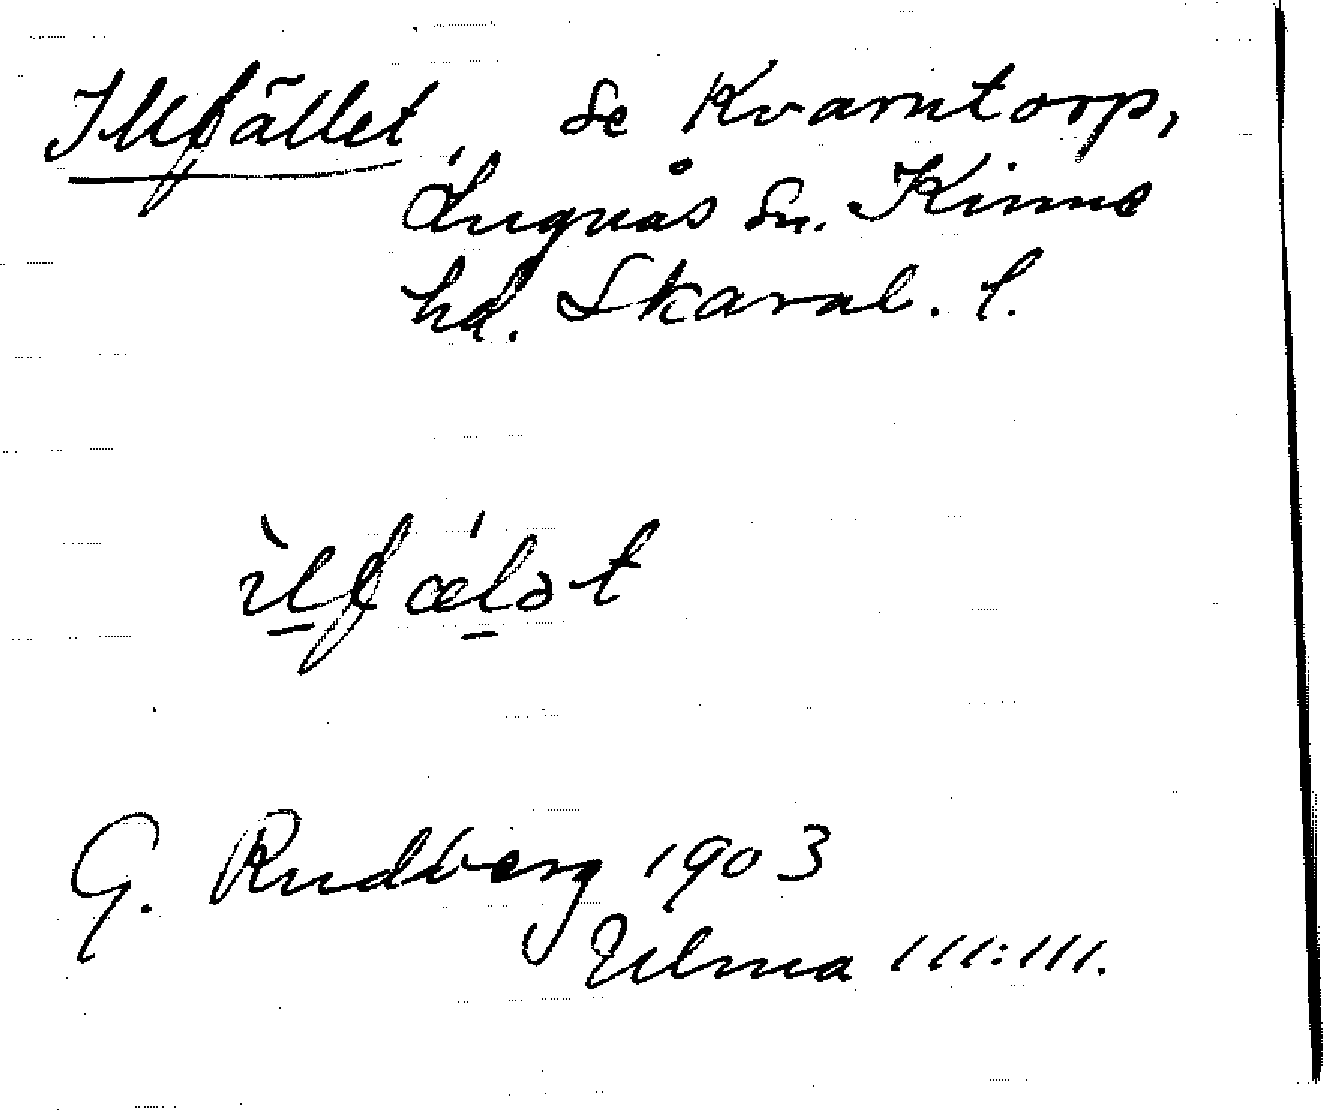 Illfället, se Kvarntorp,
Lugnås sn. Kinne
hd. Skarab. l.
ìlfǽlət
G. Rudberg 1903
Ulma 111:111.